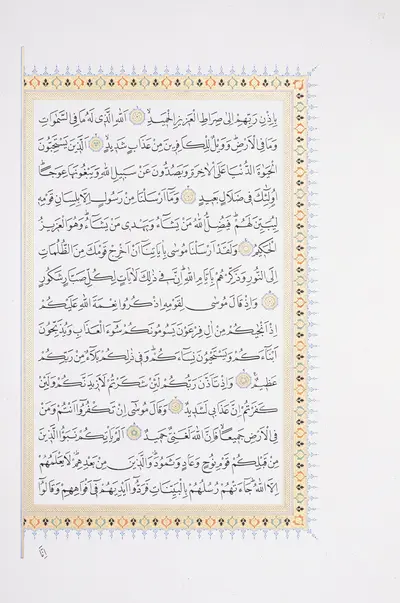 بِاِذْنِ رَبِّهِمْ اِلٰى صِرَاطِ الْعَزِيزِ الْحَمِيدِۙ ۝ اَللّٰهِ الَّذِي لَهُ مَا فِي السَّمٰوَاتِ
وَمَا فِي الْاَرْضِۜ وَوَيْلٌ لِلْكَافِرِينَ مِنْ عَذَابٍ شَدِيدٍۙ ۝ اَلَّذِينَ يَسْتَحِبُّونَ
الْحَيٰوةَ الدُّنْيَا عَلَى الْاٰخِرَةِ وَيَصُدُّونَ عَنْ سَبِيلِ اللّٰهِ وَيَبْغُونَهَا عِوَجًاۜ
اُولٰٓئِكَ فِي ضَلَالٍ بَعِيدٍ ۝ وَمَٓا اَرْسَلْنَا مِنْ رَسُولٍ اِلَّا بِلِسَانِ قَوْمِهِ
لِيُبَيِّنَ لَهُمْۜ فَيُضِلُّ اللّٰهُ مَنْ يَشَٓاءُ وَيَهْدِي مَنْ يَشَٓاءُۜ وَهُوَ الْعَزِيزُ
الْحَكِيمُ ۝ وَلَقَدْ اَرْسَلْنَا مُوسٰى بِاٰيَاتِنَٓا اَنْ اَخْرِجْ قَوْمَكَ مِنَ الظُّلُمَاتِ
اِلَى النُّورِ وَذَكِّرْهُمْ بِاَيَّامِ اللّٰهِۜ اِنَّ فِي ذٰلِكَ لَاٰيَاتٍ لِكُلِّ صَبَّارٍ شَكُورٍ
۝ وَاِذْ قَالَ مُوسٰى لِقَوْمِهِ اذْكُرُوا نِعْمَةَ اللّٰهِ عَلَيْكُمْ
اِذْ اَنْجٰيكُمْ مِنْ اٰلِ فِرْعَوْنَ يَسُومُونَكُمْ سُٓوءَ الْعَذَابِ وَيُذَبِّحُونَ
اَبْنَٓاءَكُمْ وَيَسْتَحْيُونَ نِسَٓاءَكُمْۜ وَفِي ذٰلِكُمْ بَلَٓاءٌ مِنْ رَبِّكُمْ
عَظِيمٌ ۝ وَاِذْ تَاَذَّنَ رَبُّكُمْ لَئِنْ شَكَرْتُمْ لَاَزِيدَنَّكُمْ وَلَئِنْ
كَفَرْتُمْ اِنَّ عَذَابِي لَشَدِيدٌ ۝ وَقَالَ مُوسٰٓى اِنْ تَكْفُرُٓوا اَنْتُمْ وَمَنْ
فِي الْاَرْضِ جَمِيعًاۙ فَاِنَّ اللّٰهَ لَغَنِيٌّ حَمِيدٌ ۝ اَلَمْ يَأْتِكُمْ نَبَؤُا الَّذِينَ
مِنْ قَبْلِكُمْ قَوْمِ نُوحٍ وَعَادٍ وَثَمُودَۜ وَالَّذِينَ مِنْ بَعْدِهِمْۜ لَا يَعْلَمُهُمْ
اِلَّا اللّٰهُۜ جَٓاءَتْهُمْ رُسُلُهُمْ بِالْبَيِّنَاتِ فَرَدُّٓوا اَيْدِيَهُمْ فِٓي اَفْوَاهِهِمْ وَقَالُٓوا
اِنَّا